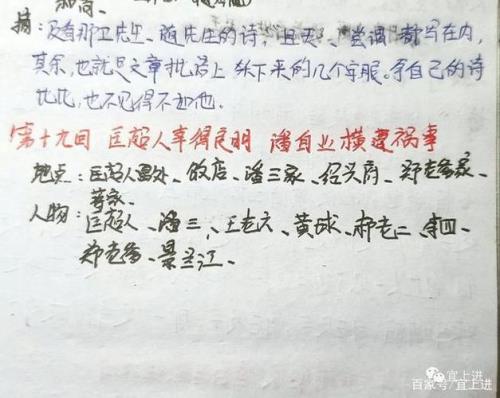 摘：及看那卫先生、随先生的诗，"且夫"、尝谓"都写在内，
其余，也就是文章批语上采下来的几个字眼。拿自己的诗
比比，也不见得不如他。
第十九回 匡超人幸得良朋 潘自业横遭祸事
地点：匡超人寓处、饭店、潘三家、绍兴府、郑老爹家、
人物：匡超人、潘三、王老六、黄球、郝老二、李四、
郑老爹、景兰江、
宜上进
百家号/宜上进